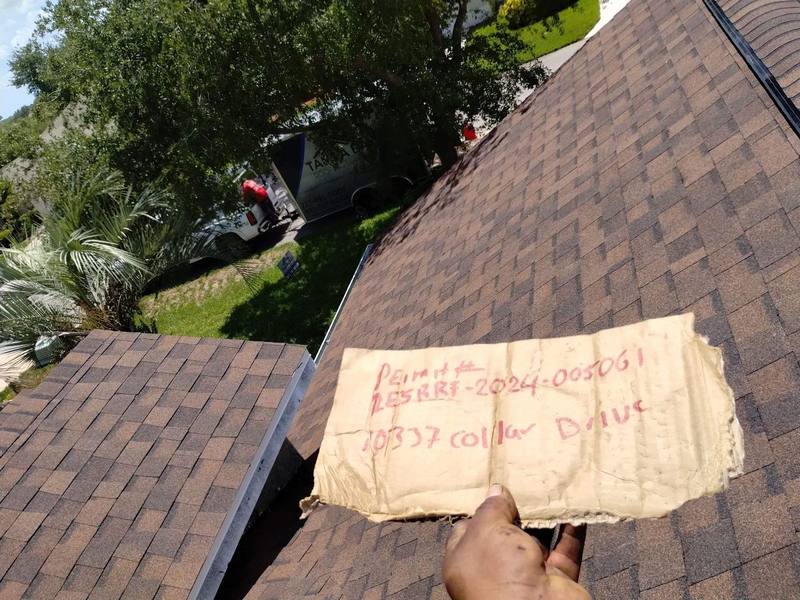 TAMPA
Permit#
RESRRF-2024-005061
10337 collar Drive